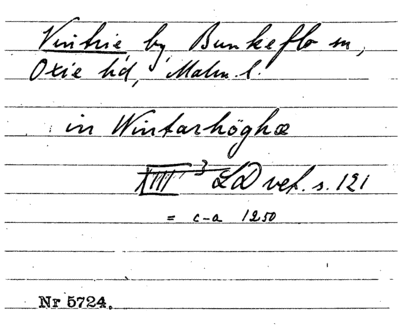 Vintrie, by, Bunkeflo sn,
Oxie hd, Malm. l.
in Wintarhöghæ
XIII 3 LD vet. s. 121
= c-a 1250
Nr 5724.